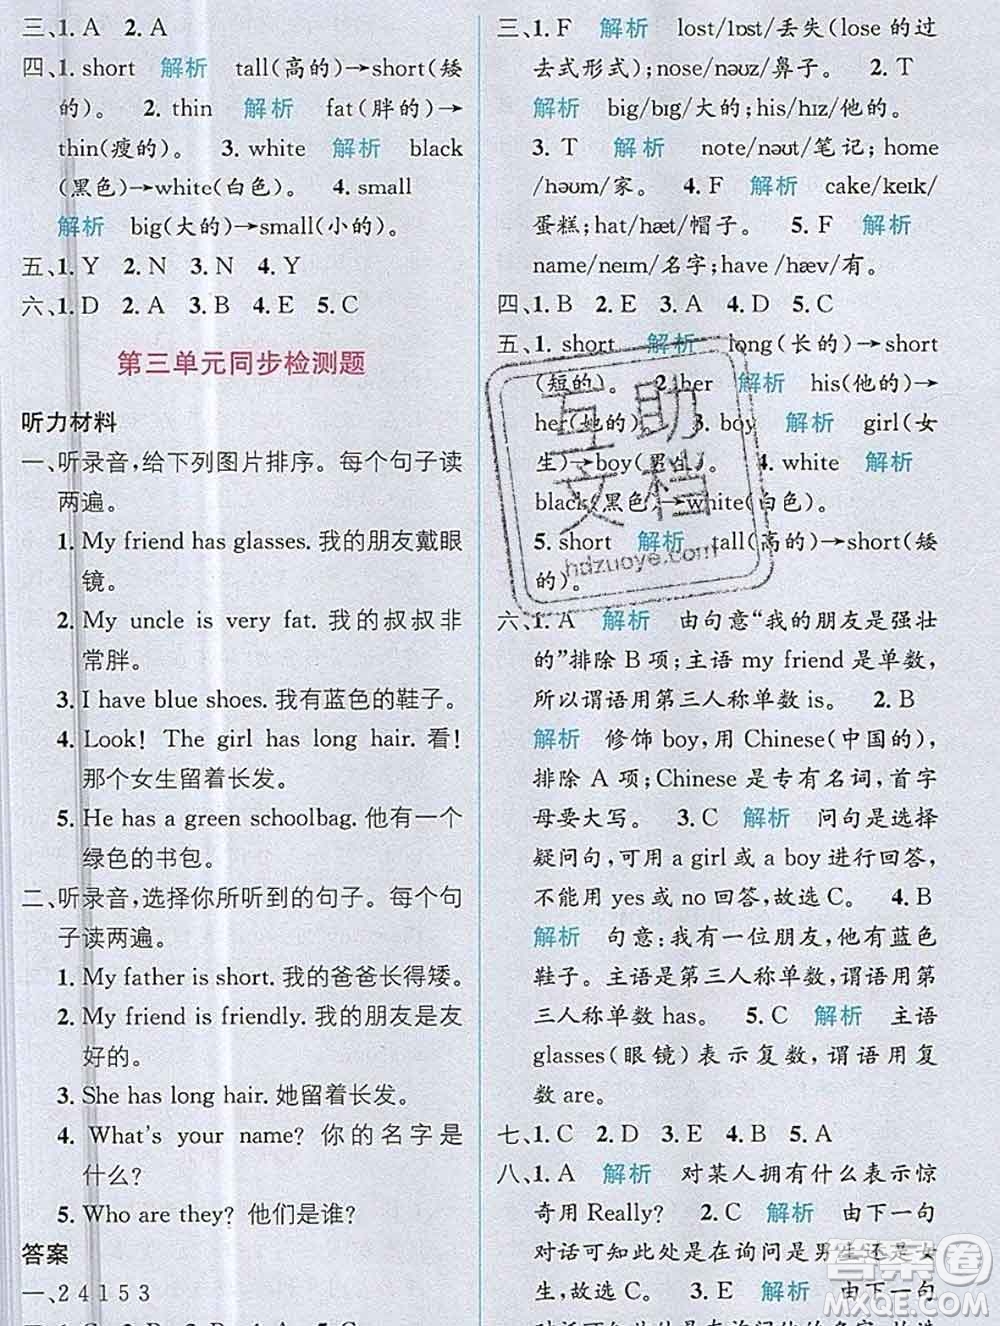 三、1. A  2. A
四、1. short  解析  tall(高的)→short(矮
的)。  2. thin  解析  fat(胖的)→
thin(瘦的)。  3. white  解析  black
(黑色)→white(白色)。  4. small
解析  big(大的)→small(小的)。
五、1. Y  2. N  3. N  4. Y
六、1. D  2. A  3. B  4. E  5. C
第三单元同步检测题
听力材料
一、听录音,给下列图片排序。每个句子读
两遍。
1. My friend has glasses. 我的朋友戴眼
镜。
2. My uncle is very fat. 我的叔叔非
常胖。
3. I have blue shoes. 我有蓝色的鞋子。
4. Look! The girl has long hair. 看!
那个女生留着长发。
5. He has a green schoolbag. 他有一个
绿色的书包。
二、听录音,选择你所听到的句子。每个句
子读两遍。
1. My father is short. 我的爸爸长得矮。
2. My friend is friendly. 我的朋友是友
好的。
3. She has long hair. 她留着长发。
4. What's your name? 你的名字是
什么?
5. Who are they? 他们是谁?
答案
一、2 4 1 5 3
三、1. F  解析  lost/lɒst/丢失(lose的过
去式形式);nose/nəʊz/鼻子。  2. T
解析  big/bɪg/大的;his/hɪz/他的。
3. T  解析  note/nəʊt/笔记;home
/həʊm/家。  4. F  解析  cake/keɪk/
蛋糕;hat/hæt/帽子。  5. F  解析
name/neɪm/名字;have /hæv/有。
四、1. B  2. E  3. A  4. D  5. C
五、1. short  解析  long(长的)→short
(短的)。  2. her  解析  his(他的)→
her(她的)。  3. boy  解析  girl(女
生)→boy(男生)。  4. white  解析
black(黑色)→white(白色)。
5. short  解析  tall(高的)→short(矮
的)。
六、1. A  解析  由句意“我的朋友是强壮
的”排除 B 项;主语 my friend 是单数,
所以谓语用第三人称单数 is。  2. B
解析  修饰 boy,用 Chinese(中国的),
排除 A 项;Chinese 是专有名词,首字
母要大写。  3. C  解析  问句是选择
疑问句,可用 a girl 或 a boy 进行回答,
不能用 yes 或 no 回答,故选 C。  4. B
解析  句意:我有一位朋友,他有蓝色
鞋子。主语是第三人称单数,谓语用第
三人称单数 has。  5. C  解析  主语
glasses(眼镜)表示复数,谓语用复
数 are。
七、1. C  2. D  3. E  4. B  5. A
八、1. A  解析  对某人拥有什么表示惊
奇用 Really?  2. C  解析  由下一句
对话可知此处是在询问是男生还是女
生,故选 C。  3. E  解析  由下一句
互助
文档
hdzuoye.com
答案圈
MXQE.COM